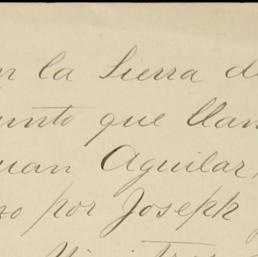 la Sierra de
que llam
uan Aguilar,
por Joseph